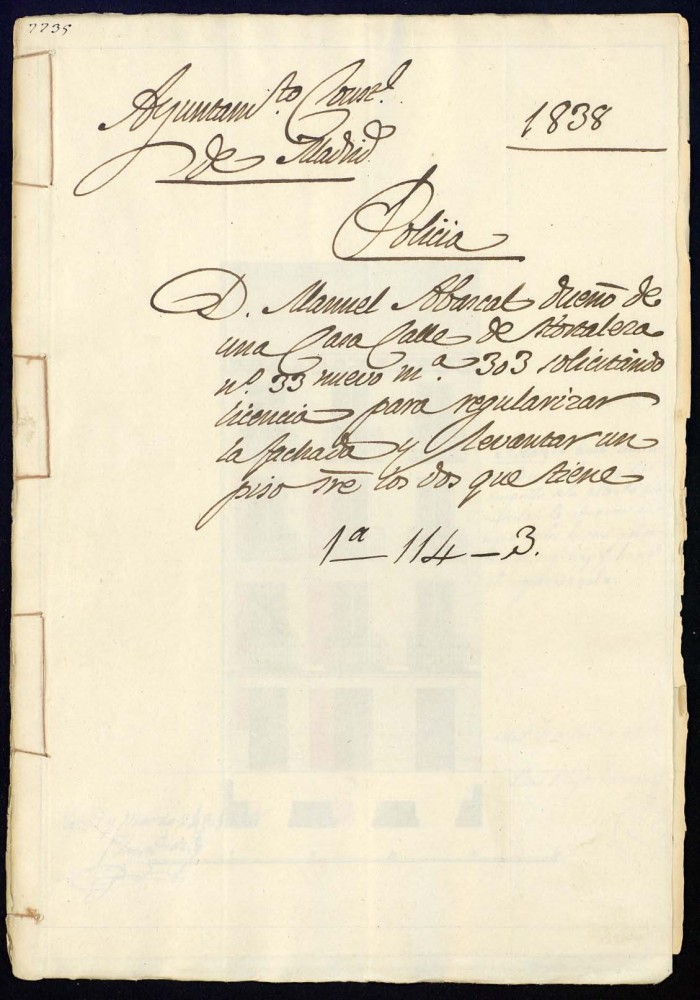 7735
Ayuntam.to Const.l
de Madrid
1838
Policia
D. Manuel Abascal dueño de
una Casa Calle de Hortaleza
n.º 33 nuevo m.ª 303 solicitando
licencia para regularizar
la fachada y levantar un
piso sre los dos que tiene
1ª 114-3.